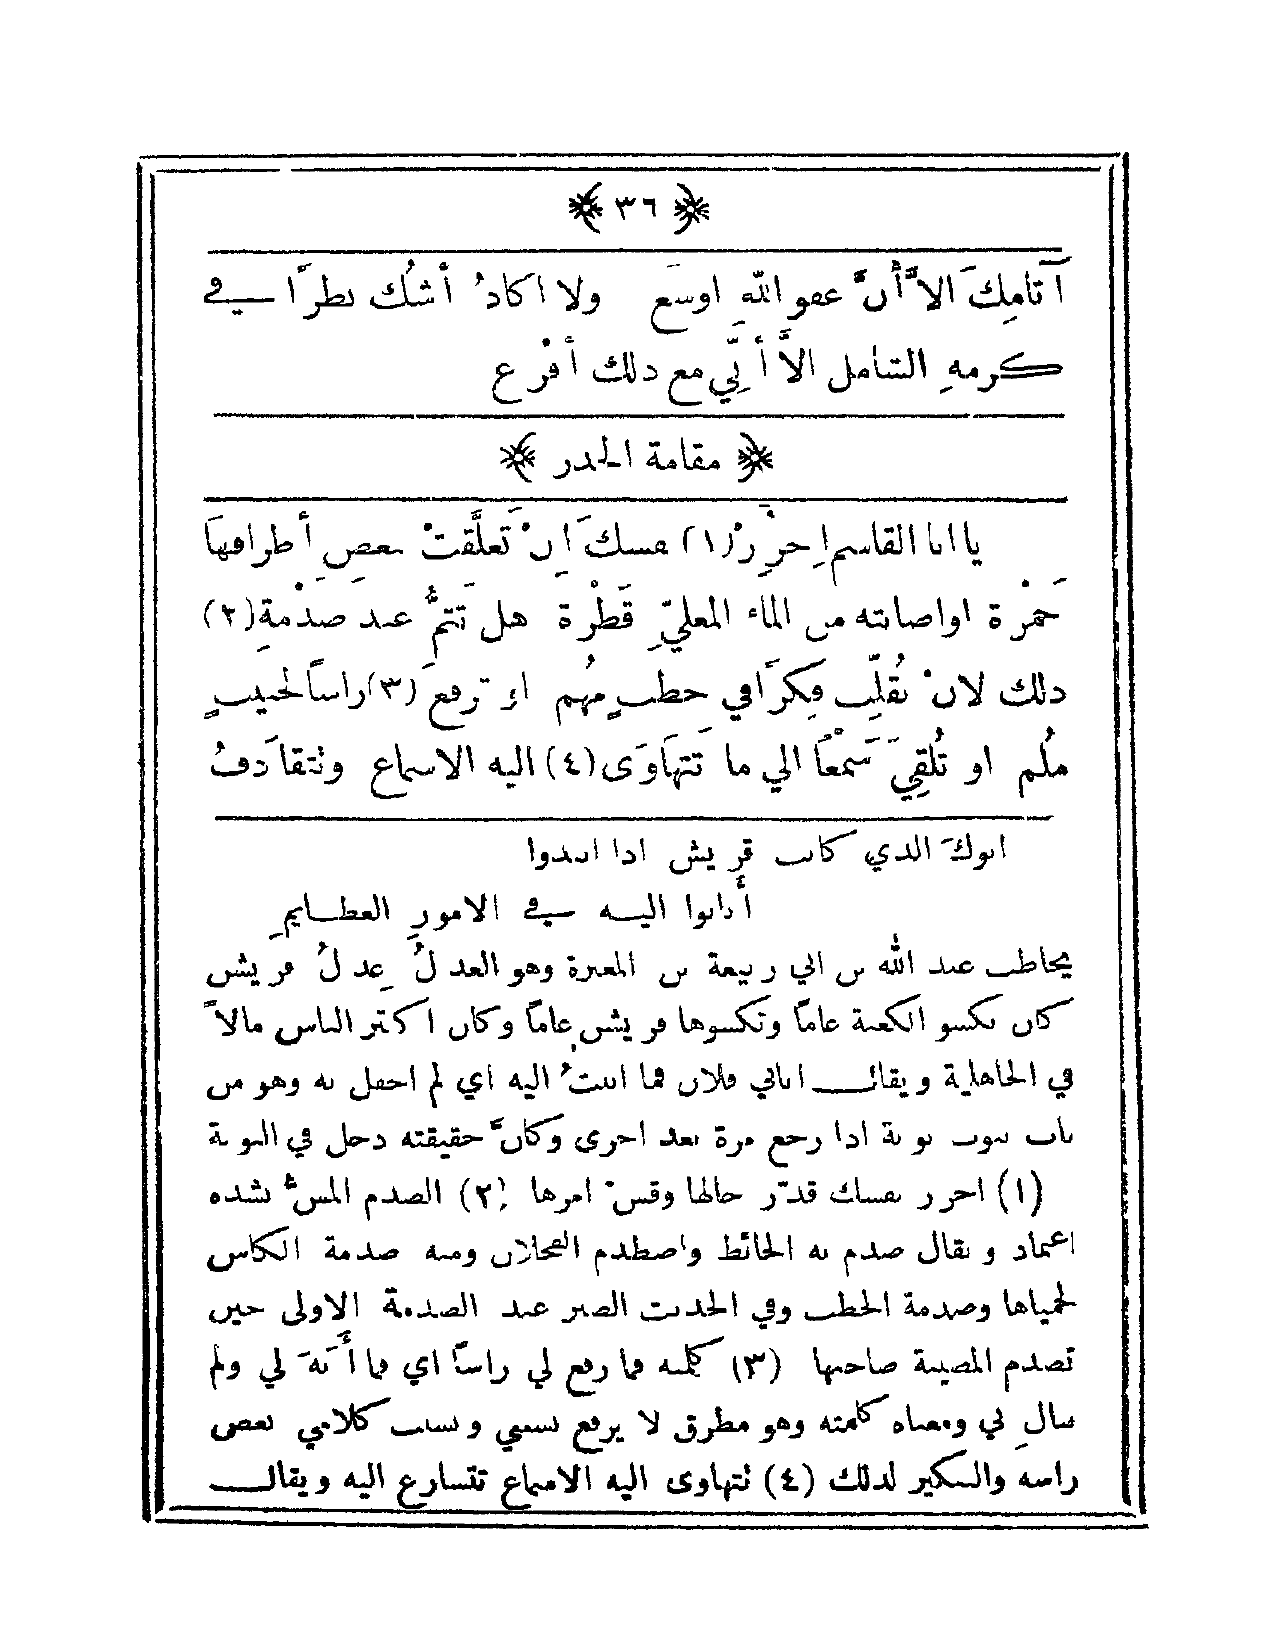 ﴿ ٣٦ ﴾
آثامِكَ الاَّ أَنَّ عفو اللّهِ اوسَع ولا اكادُ أَشُك نظرًا في
كرمهِ الشامل الاَّ أَنِّي مع ذلك أَفْرَع
﴿ مقامة الحذر ﴾
يا ابا القاسم احرِزْ (١) نفسكَ اِنْ تَعلَّقَتْ ببعض أَطرافِهَا
جَمْرة او اصابته من الماء المغليِّ قَطْرة هل تَتمُّ عند صَدْمةِ (٢)
ذلك لاَنْ تُقلِّب فِكرًا في خطبٍ مُهِم او تَرفع (٣) راساً لحبيبٍ
مُلم او تُلقِيَ سَمْعًا الي ما تَتهاوَى (٤) اليه الاسماع وتتقاذَفُ
ابوكَ الذي كانت قريش اذا انتدوا
أَنابوا اليه في الامورِ العظايمِ
يخاطب عبد الله بن ابي ربيعة بن المغيرة وهو العدلُ عِدلُ قريش
كان يكسو الكعبة عاماً وتكسوها قريش عاماً وكان اكثر الناس مالاً
في الجاهلية ويقال اتاني فلان فما انبتُ اليه اي لم احفل به وهو من
باب ينوب نوبة اذا رجع مرة بعد اخرى وكانَّ حقيقته دخل في النوبة
(١) احرز نفسك قدّر حالها وقسْ امرها (٢) الصدم المسُّ بشده
اعتماد ويقال صدم به الحائط واصطدم الفحلان ومنه صدمة الكاس
لحمياها وصدمة الخطب وفي الحديث الصبر عند الصدمة الاولى حين
تصدم المصيبة صاحبها (٣) كلمته فما رفع لي راساً اي فما أَبَهَ لي ولم
يبالِ لي ومعناه كلمته وهو مطرق لا يرفع بسمعي وبسبب كلامي بعض
راسه والتنكير لذلك (٤) تتهاوى اليه الاسماع تتسارع اليه ويقال